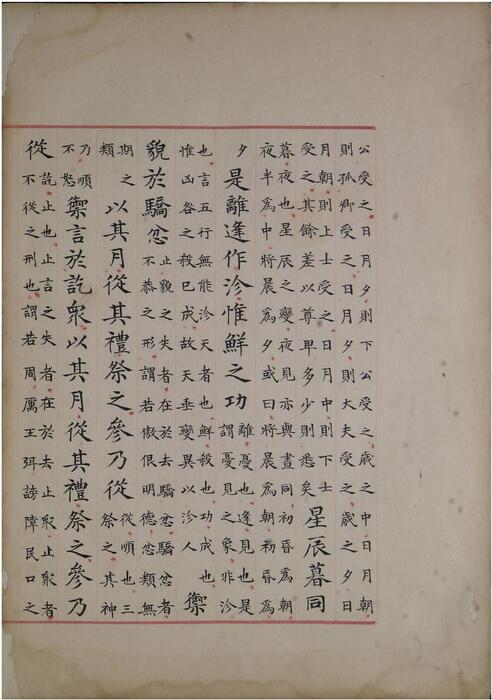 公受之日月夕則下公受之歲之中日月朝
則孤卿受之日月夕則大夫受之歲之夕日
月朝則上士受之日月中則下士
受之其餘差以尊卑多少則悉矣
星辰暮同
暮夜也星辰之變夜見亦與晝同初昏為朝
夜半為中將晨為夕或曰將晨為朝初昏為
夕
是離逢作沴惟鮮之功
離憂也逢見也是
謂憂見之象非沴
也言五行無能沴天者也鮮殺也功成也
惟凶咎之殺已成故天垂變異以沴人
禦
貌於驕忿
止貌之失者在於去驕忿驕忿者
不恭之形謂若傲佷明德忿類無
期之
類
以其月從其禮祭之參乃從
從順也三
祭之其神
乃順
不怒
禦言於訖衆以其月從其禮祭之參乃
從
訖止也止言之失者在於去止衆者
不從之刑也謂若周厲王弭謗障民口之